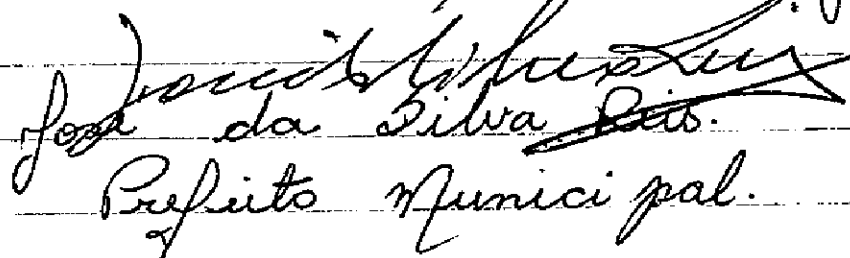 José da Silva Reis.
Prefeito Municipal.